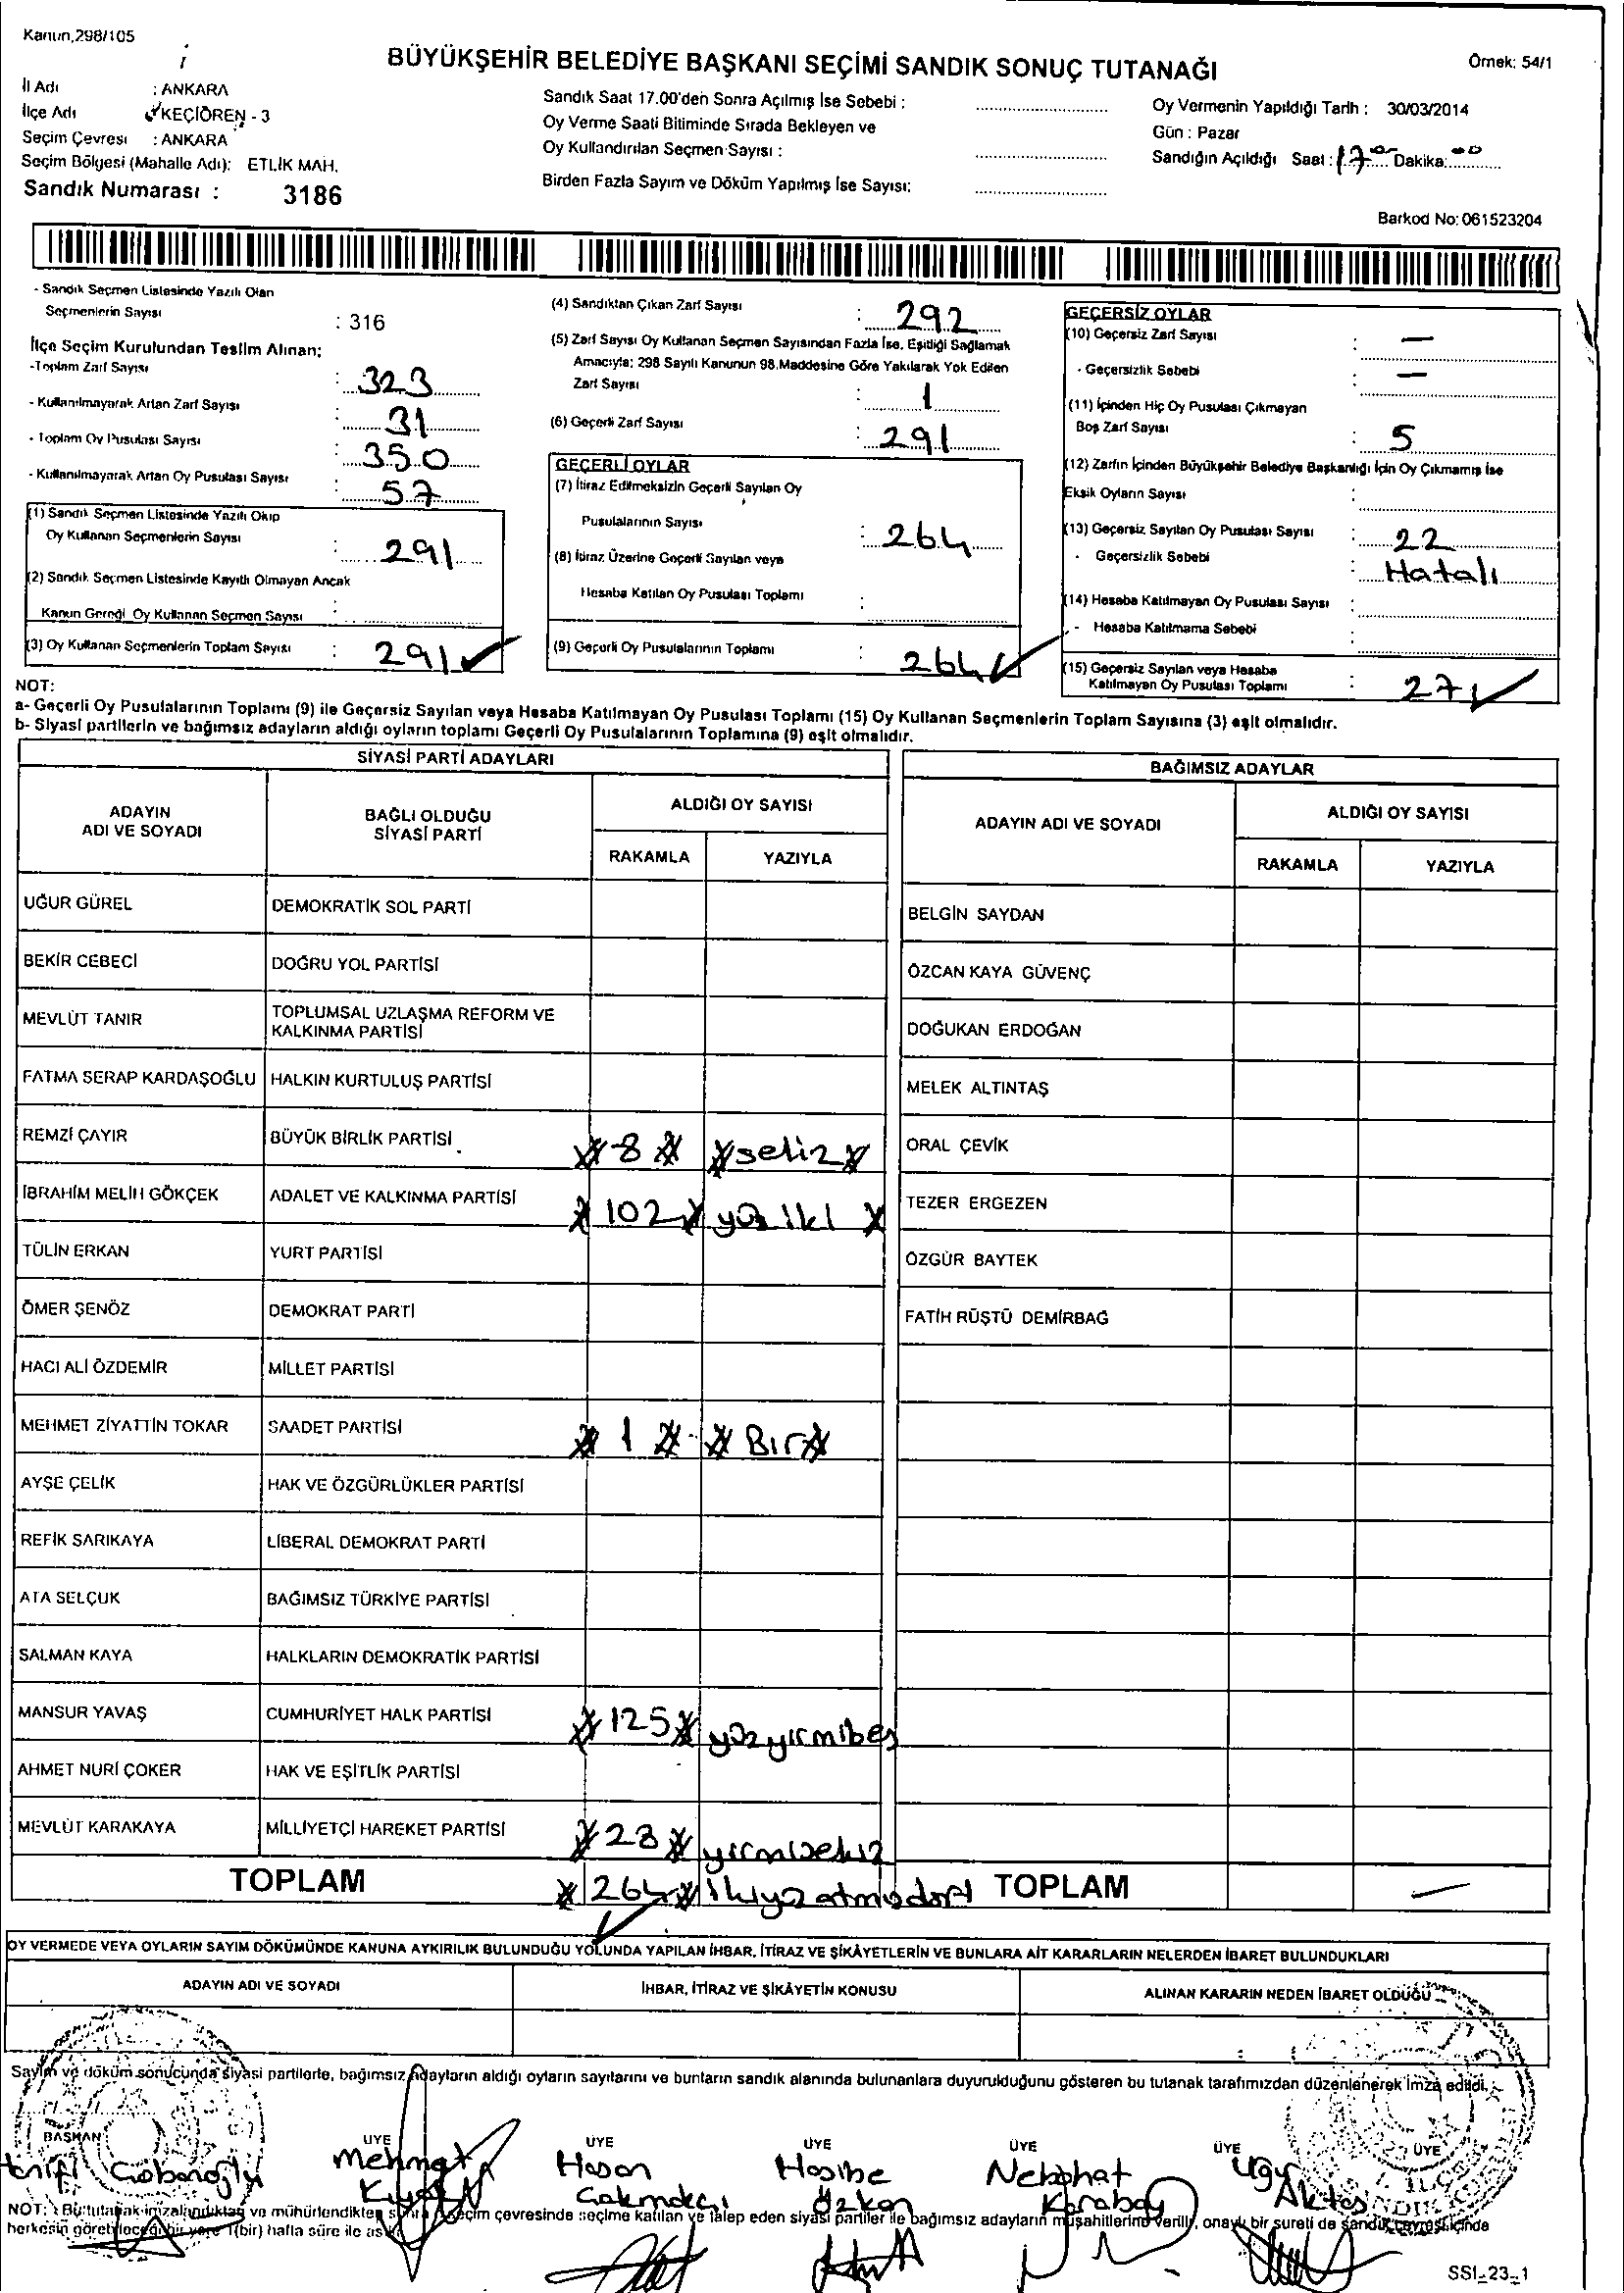 Kanun,298/105
BÜYÜKŞEHİR BELEDİYE BAŞKANI SEÇİMİ SANDIK SONUÇ TUTANAĞI
Örnek: 54/1
İl Adı : ANKARA
İlçe Adı KEÇİÖREN - 3
Seçim Çevresi : ANKARA
Seçim Bölgesi (Mahalle Adı): ETLİK MAH.
Sandık Numarası : 3186
Sandık Saat 17.00'den Sonra Açılmış İse Sebebi :
Oy Verme Saati Bitiminde Sırada Bekleyen ve
Oy Kullandırılan Seçmen Sayısı :
Birden Fazla Sayım ve Döküm Yapılmış İse Sayısı:
Oy Vermenin Yapıldığı Tarih : 30/03/2014
Gün : Pazar
Sandığın Açıldığı Saat : 17 Dakika: 00
Barkod No: 061523204
- Sandık Seçmen Listesinde Yazılı Olan
Seçmenlerin Sayısı : 316
İlçe Seçim Kurulundan Teslim Alınan:
-Toplam Zarf Sayısı : 323
- Kullanılmayarak Artan Zarf Sayısı : 31
- Toplam Oy Pusulası Sayısı : 350
- Kullanılmayarak Artan Oy Pusulası Sayısı : 57
(1) Sandık Seçmen Listesinde Yazılı Olup
Oy Kullanan Seçmenlerin Sayısı : 291
(2) Sandık Seçmen Listesinde Kayıtlı Olmayan Ancak
Kanun Gereği Oy Kullanan Seçmen Sayısı :
(3) Oy Kullanan Seçmenlerin Toplam Sayısı : 291
(4) Sandıktan Çıkan Zarf Sayısı : 292
(5) Zarf Sayısı Oy Kullanan Seçmen Sayısından Fazla İse, Eşitliği Sağlamak
Amacıyla; 298 Sayılı Kanunun 98.Maddesine Göre Yakılarak Yok Edilen
Zarf Sayısı : 1
(6) Geçerli Zarf Sayısı : 291
GEÇERLİ OYLAR
(7) İtiraz Edilmeksizin Geçerli Sayılan Oy
Pusulalarının Sayısı : 264
(8) İtiraz Üzerine Geçerli Sayılan veya
Hesaba Katılan Oy Pusulası Toplamı :
(9) Geçerli Oy Pusulalarının Toplamı : 264
GEÇERSİZ OYLAR
(10) Geçersiz Zarf Sayısı : —
- Geçersizlik Sebebi : —
(11) İçinden Hiç Oy Pusulası Çıkmayan
Boş Zarf Sayısı : 5
(12) Zarfın İçinden Büyükşehir Belediye Başkanlığı İçin Oy Çıkmamış İse
Eksik Oyların Sayısı :
(13) Geçersiz Sayılan Oy Pusulası Sayısı : 22
- Geçersizlik Sebebi : Hatalı
(14) Hesaba Katılmayan Oy Pusulası Sayısı :
- Hesaba Katılmama Sebebi :
(15) Geçersiz Sayılan veya Hesaba
Katılmayan Oy Pusulası Toplamı : 27
NOT:
a- Geçerli Oy Pusulalarının Toplamı (9) ile Geçersiz Sayılan veya Hesaba Katılmayan Oy Pusulası Toplamı (15) Oy Kullanan Seçmenlerin Toplam Sayısına (3) eşit olmalıdır.
b- Siyasi partilerin ve bağımsız adayların aldığı oyların toplamı Geçerli Oy Pusulalarının Toplamına (9) eşit olmalıdır.
SİYASİ PARTİ ADAYLARI
ADAYIN ADI VE SOYADI BAĞLI OLDUĞU SİYASİ PARTİ ALDIĞI OY SAYISI
RAKAMLA YAZIYLA
UĞUR GÜREL DEMOKRATİK SOL PARTİ
BEKİR CEBECİ DOĞRU YOL PARTİSİ
MEVLÜT TANIR TOPLUMSAL UZLAŞMA REFORM VE KALKINMA PARTİSİ
FATMA SERAP KARDAŞOĞLU HALKIN KURTULUŞ PARTİSİ
REMZİ ÇAYIR BÜYÜK BİRLİK PARTİSİ 8 sekiz
İBRAHİM MELİH GÖKÇEK ADALET VE KALKINMA PARTİSİ 102 yüz iki
TÜLİN ERKAN YURT PARTİSİ
ÖMER ŞENÖZ DEMOKRAT PARTİ
HACI ALİ ÖZDEMİR MİLLET PARTİSİ
MEHMET ZİYATTİN TOKAR SAADET PARTİSİ 1 Bir
AYŞE ÇELİK HAK VE ÖZGÜRLÜKLER PARTİSİ
REFİK SARIKAYA LİBERAL DEMOKRAT PARTİ
ATA SELÇUK BAĞIMSIZ TÜRKİYE PARTİSİ
SALMAN KAYA HALKLARIN DEMOKRATİK PARTİSİ
MANSUR YAVAŞ CUMHURİYET HALK PARTİSİ 125 yüzyirmibeş
AHMET NURİ ÇOKER HAK VE EŞİTLİK PARTİSİ
MEVLÜT KARAKAYA MİLLİYETÇİ HAREKET PARTİSİ 28 yirmisekiz
TOPLAM 264 ikiyüzatmışdört
BAĞIMSIZ ADAYLAR
ADAYIN ADI VE SOYADI ALDIĞI OY SAYISI
RAKAMLA YAZIYLA
BELGİN SAYDAN
ÖZCAN KAYA GÜVENÇ
DOĞUKAN ERDOĞAN
MELEK ALTINTAŞ
ORAL ÇEVİK
TEZER ERGEZEN
ÖZGÜR BAYTEK
FATİH RÜŞTÜ DEMİRBAĞ
TOPLAM —
OY VERMEDE VEYA OYLARIN SAYIM DÖKÜMÜNDE KANUNA AYKIRILIK BULUNDUĞU YOLUNDA YAPILAN İHBAR, İTİRAZ VE ŞİKÂYETLERİN VE BUNLARA AİT KARARLARIN NELERDEN İBARET BULUNDUKLARI
ADAYIN ADI VE SOYADI İHBAR, İTİRAZ VE ŞİKÂYETİN KONUSU ALINAN KARARIN NEDEN İBARET OLDUĞU
Sayım ve döküm sonucunda siyasi partilerle, bağımsız adayların aldığı oyların sayılarını ve bunların sandık alanında bulunanlara duyurulduğunu gösteren bu tutanak tarafımızdan düzenlenerek imza edildi.
BAŞKAN ÜYE ÜYE ÜYE ÜYE ÜYE ÜYE
Çobanoğlu Mehmet Hasan Hasibe Nebahat Uğur
Çakmakçı Özkan Karabay Aktaş
NOT: Bu tutanak imzalandıktan ve mühürlendikten sonra seçim çevresinde seçime katılan ve talep eden siyasi partiler ile bağımsız adayların müşahitlerine verilir, onaylı bir sureti de sandık çevresi içinde
herkesin görebileceği bir yere 1(bir) hafta süre ile asılır
SSI_23_1